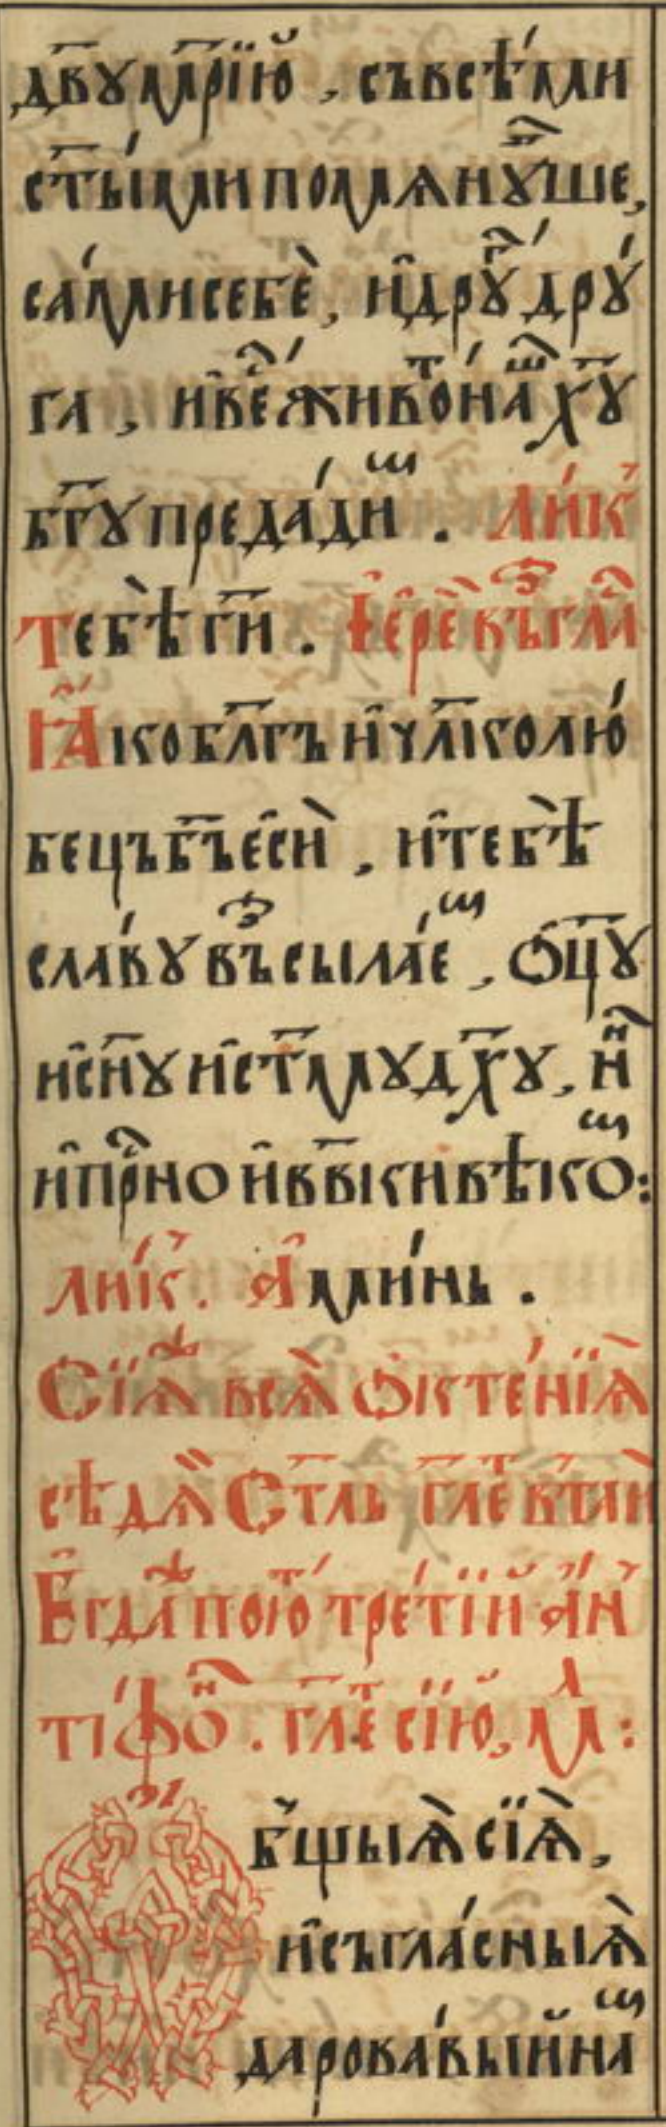 дв҃ꙋмр҃їю̆ , съвсѣ́ми
ст҃ы́ми помѧнꙋ́вше,
са́ми себѐ , и҆ дрꙋ́гъ дрꙋ́
га , и҆ве́сь живо́тъ на́шъ хꙋ҃
бг҃ꙋ предади́мъ . ли́къ
тебѣ̀ гн҃и . і҆ере́й въꙁгла́
ꙗ҆́ко бл҃гъ и҆ чл҃колю́
бецъ бг҃ъ є҆сѝ , и҆ тебѣ̀
сла́вꙋ въꙁсыла́ем , ѻ҆ц҃ꙋ
и҆ сн҃ꙋ и҆ ст҃мꙋ дх҃ꙋ , и҆ нн҃ѣ
и҆ при́сно и҆ въвѣ́ки вѣко́мъ :
ли́къ . а҆ми́нь .
Сїѧ̑ всѧ̀ ѻ҆ктенїѧ̀
сѣдѧ̀ ст҃ль гл҃етъ вта́й
Є҆гда̀ пою́тъ тре́тїй а҆н
тїфо́нъ . гл҃етъ сїю̀ , мл :
Ѻ҆ бщыѧ̀ сїѧ̀ ,
и҆ съгла́сныѧ
дарова́вый на́мъ